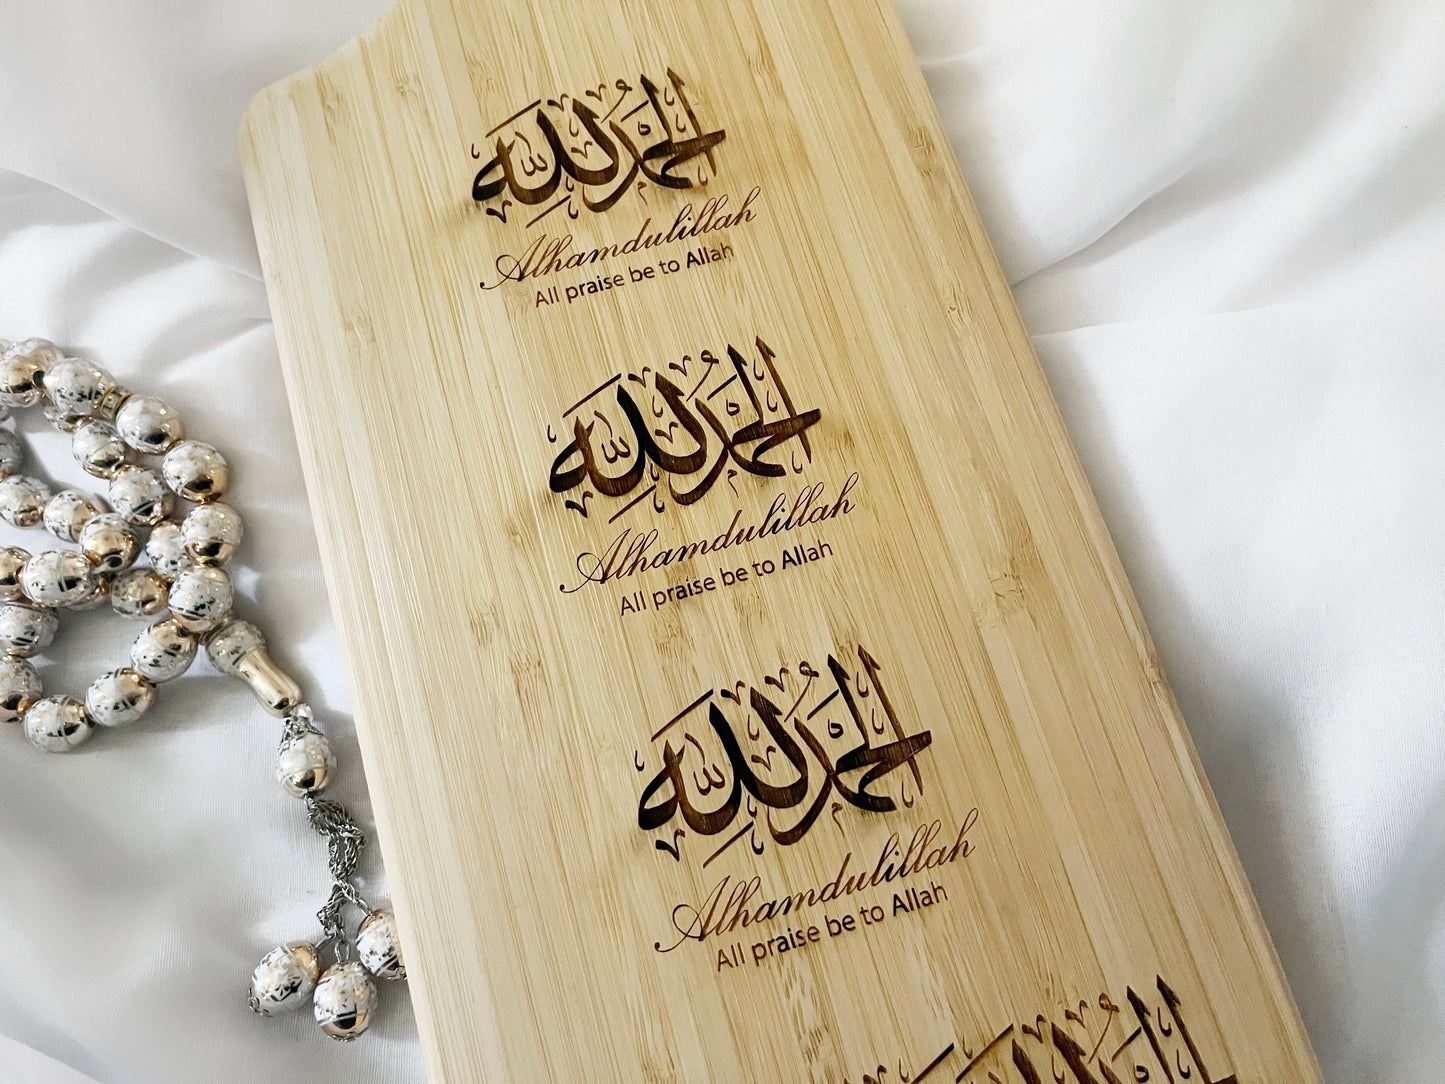 الحمد لله
Alhamdulillah
All praise be to Allah
الحمد لله
Alhamdulillah
All praise be to Allah
الحمد لله
Alhamdulillah
All praise be to Allah